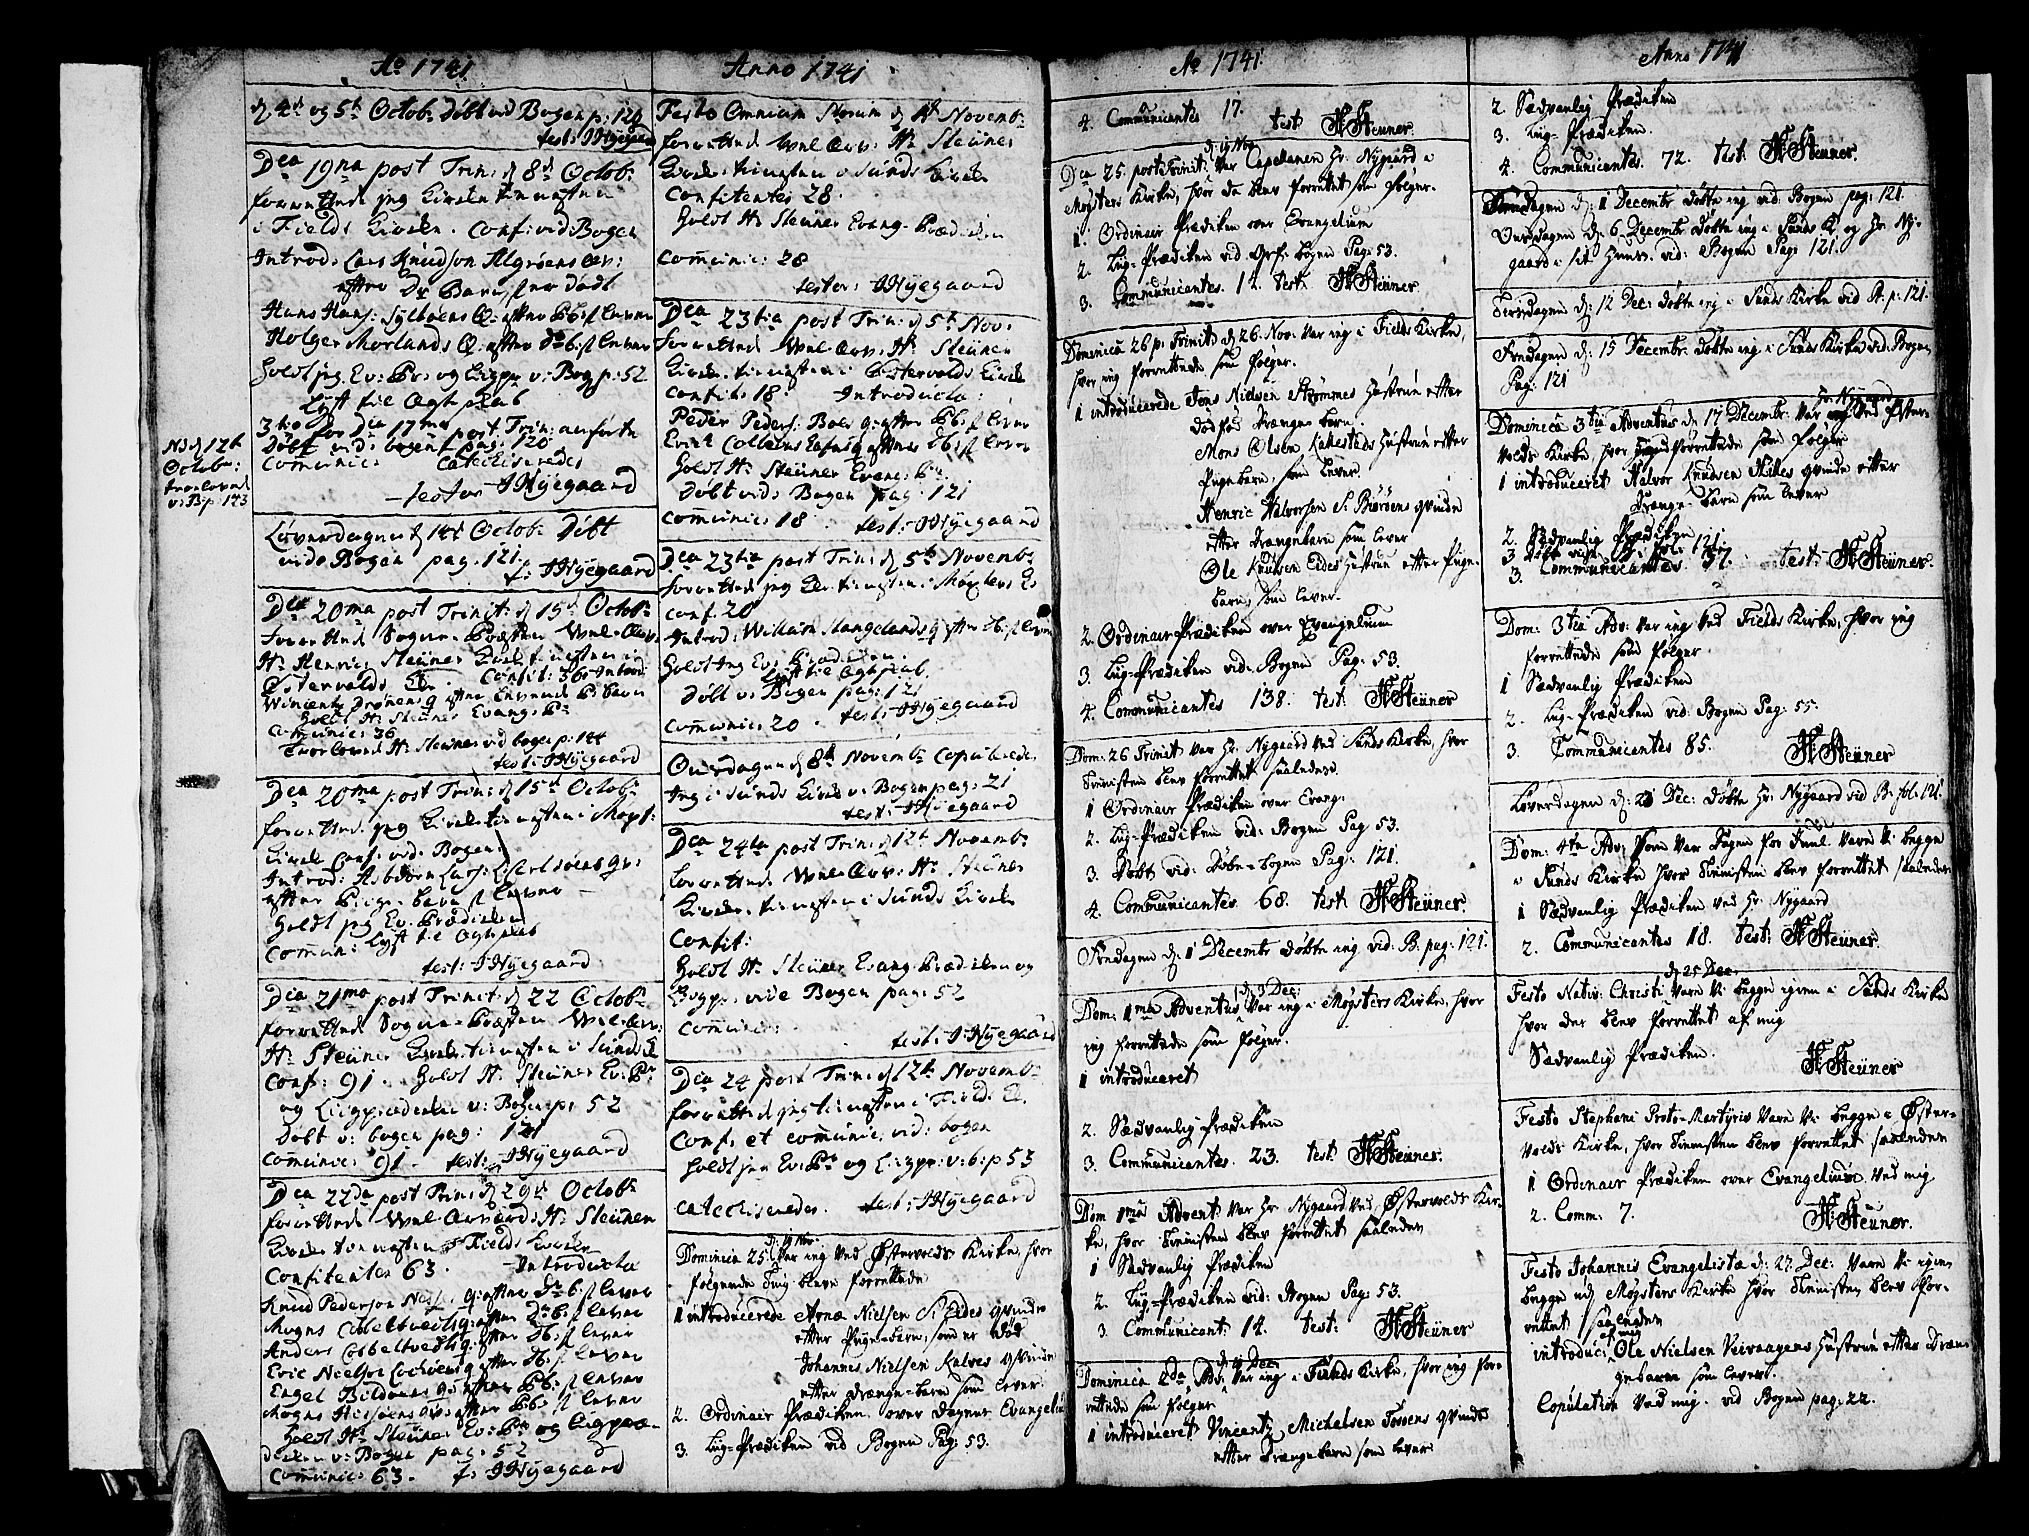 Ao 1741
d 4d og 5t Octob: døbt vid Bogen p: 120
test: JNyegaard
Dca 19na post Trin: d 8d Octob:
forrettede jeg Kircketienesten
i Fields Kircke. Conf: vid: Bogen
Introd: Lars Knudson
efter D: Barn, som er dødt
Hans Hans: Q: efter Pb: s lever
Holger Morlands Q: efter db: s lever
holdt jeg Ev: Pr: og Liigpr v: Bog p: 52
Lyst til Ægteskab
3tio for Dca 17ma post Trin: anførte
Døbt vid: bogen pag: 120
Comunic: Catechiserede
testor JNyegaard
Nb d 12t
Octobr:
v: B: p: 123
Løverdagen d 14d Octob: Døbt
vide Bogen pag: 121
t: JNyegaard
Dca 20ma post Trinit: d 15d Octob:
forrettede Sogne-Præsten Wel-Ærv:
Hr Henric Steüner Kircketienesten i
Østervolds K: Confit: 36 Introd:
holdt Hr Steüner Evang: Pr:
Comunic: 36
Troelovede Hr Steüner vid bogen p: 144
test: JNyegaard
Dca 20ma post Trin: d 15d Octob:
forrettede jeg Kircketienesten i Møgst:
Kircke Conf: vid: Bogen
Introd: Asbiörn Lars:
efter Pige-barn s lever
holdt jeg Ev: Prædicken
Comun: Lyst til Ægteskab
test: JNyegaard
Dca 21ma post Trinit: d 22 Octob:
forrettede Sogne-Præsten Wel-Ærv:
Hr Steüner Kircketienesten i Sunds K
Conf: 91. holdt Hr Steüner Ev: Pr
og Liigprædicken v: Bogen p: 52
Døbt v: bogen pag: 121
Comunic: 91. test: JNyegaard
Dca 22da post Trin: d 29d Octob:
forrettede Wel-Ærværd: Hr Steüner
Kircketienesten i Fields Kircke
Confitentes 63. Introducta
Knud Pederson q: efter Db: s lever
Mogns q: efter Db: s lever
Anders q: efter Db: s lever
Eric q efter Db: s lever
Engel q: efter Pb: s lever
Mogns q: efter Pb: s lever
holdt Hr Steüner Ev: Pr og Liigpræ-
dicken v: Bogen pag: 52
Comunic: 63. t: JNyegaard
Anno 1741
Festo Omnium Storum d 1t Novemb:
forrettede Wel-Ærv: Hr Steüner
Kircketienesten i Sunds Kircke
Confitentes 28.
holdt Hr Steüner Evang: Prædicken
Comunic: 28
testor: JNyegaard
Dca 23tia post Trin: d 5t Nov:
forrettede Wel-Ærv: Hr Steüner
Kircketienesten i Østervolds Kircke
Confit: 18. Introducta:
Peder Peders: q: efter Pb: s lever
q efter Db: s lever
holdt Hr Steüner Evang: Pr:
Døbt vid: Bogen pag: 121
Comunic: 18 test: JNyegaard
Dca 23tia post Trin: d 5t Novemb:
forrettede jeg Kirtienesten i Møgsters K:
Conf: 20
Introd: Willum Slangelands q efter Db: s lever
holdt Jeg Ev: Prædicken:
Lyst til Ægteskab
Døbt v: Bogen pag: 121
Comunic: 20. test: JNyegaard
Onsdagen d 8d Novemb: Copulerede
Jeg i Sunds Kircke v: Bogen pag: 21
test: JNyegaard
Dca 24ta post Trin: d 12t Novemb:
forrettede Wel-Ærv: Hr Steüner
Kircketienesten i Sunds Kircke
Confit:
holdt Hr Steüner Evang: Prædicken og
Liigpr: vide Bogen pag: 52
Comunic:
test: JNyegaard
Dca 24 post Trin: d 12t Novemb:
forrettede jeg tienesten i Fields K:
Conf: et Comunic: vid: bogen
holdt jeg Ev: Pr: og Liigpr: v: b: p 53
Catechiserede. test: JNyegaard
d: 19 Nov:
Dominica 25: Var ieg ved Østervolds Kirke, hvor
følgende Ting bleve forrettede
1 introducerede Arne Nielsen S: Eides qvinde
efter Pigebarn, som er død
Johannes Nielsen Kalves qvinde
efter Drænge-barn som lever.
2. Ordinair Prædiken over Dagens Evangeliū
3. Liig-Prædiken vid Bogen Pag: 53.
Ao 1741
4. Communicantes 17. test: HSteüner.
d: 19 Nov:
Dca 25. post Trinit: Var Capellanen Hr. Nygaard i
Møgsters Kirke, hvor da blev forrettet som følger.
1. Ordinair Prædiken over Evangelium
2. Liig-Prædiken vid Bogen Pag: 53.
3. Communicantes 12. test: HSteüner
Dominica 26 p. Trinit: d 26. Nov: Var ieg i Fields Kirke,
hvor ieg forrettede som følger.
1 introducerede Jens Nielsen Strømmes Hustrue efter
dødfød Drænge-barn.
Mons Olsen Hustrue efter
Pigebarn, som lever.
Henric Halvorsen S. qvinde
efter Drængebarn som lever
Ole Knudsen Eides Hustrue efter Pige-
barn, som lever.
2. Ordinair Prædiken over Evangelium
3. Liig-Prædiken vid: Bogen Pag: 53.
4. Communicantes 138. test: HSteüner
Dom: 26 Trinit Var Hr. Nygaard ved Sunds Kirke, hvor
Tienesten blev forrettet saaledes.
1 Ordinair Prædiken over Evang:
2. Liig-Prædiken vid: Bogen Pag 53.
3. Døbt vid: Døbe-bogen Pag: 121.
4. Communicantes 68. test: HSteüner.
Fredagen d: 1 Decembr Døbte ieg vid: B. pag: 121.
d: 3 Dec:
Dom: 1ma Adventus Var ieg i Møgsters Kirke, hvor
ieg forrettede som følger.
1 introduceret
2. Sædvanlig Prædiken
3. Communicantes. 23. test: HSteüner.
Dom 1ma Advent Var Hr. Nygaard ved Østervolds Kir-
ke, hvor Tienesten blev forrettet saaledes
1 Sædvanlig Prædiken
2. Liig-Prædiken vid: Bogen Pag: 53.
3. Communicant: 14. test: HSteüner
Dominica 2da Adv: Var ieg i Fields Kirke, hvor ieg for-
rettede som følger
1 introduceret Vincentz Michelsen qvinde
efter Drængebarn som lever
Anno 1741
2. Sædvanlig Prædiken
3. Liig-Prædiken.
4. Communicantes. 72. test: HSteüner.
Fredagen d: 1 Decembr Døbte ieg vid: Bogen pag: 121.
Onsdagen d: 6 Decembr Døbte ieg i Sunds K og Hr Ny-
gaard i sit Huus. vid: Bogen Pag: 121.
Tirsdagen d: 12 Dec: Døbte ieg i Sunds Kirke vid B. p: 121.
Fredagen d: 15 Decembr. Døbte ieg i Sunds Kirke vid: Bogen
Pag: 121
Hr. Nygaard
Dominica 3tia Adventus d 17 Decembr: Var ved Øster-
volds Kirke, hvor forrettede som følger
1 introduceret Halvor Knudsen qvinde efter
Drænge-barn som lever
2. Sædvanlig Prædiken
3 Døbt vid: B: fol: 121.
3. Communicantes 37. test: HSteüner.
Dom: 3tia Adv: Var ieg ved Fields Kirke, hvor ieg
forrettede som følger.
1 Sædvanlig Prædiken
2. Liig-Prædiken vid: Bogen Pag: 55.
3. Communicantes 85. HSteüner
Løverdagen d: 23 Dec: Døbte Hr: Nygaard vid B. fol: 121.
Dom: 4ta Adv: som Var Dagen for Juul Vare Vi begge
i Sunds Kirke hvor Tienisten blev forrettet saaledes
1 Sædvanlig Prædiken ved Hr. Nygaard
2. Communicantes 18. test: HSteüner.
d: 25 Dec:
Festo Nativ: Christi Vare Vi begge igien i Sunds Kirke
hvor der blev forrettet af mig
Sædvanlig Prædiken.
HSteüner
Festo Stephani Proto-Martyris Vare Vi begge i Øster-
volds Kirke, hvor Tienisten blev forrettet saaledes
1 Ordinair Prædiken over Evangelium ved mig
2. Comm: 7. HSteüner.
Festo Johannis Evangelistæ d: 27. Dec: Vare Vi igien
begge ud Møgsters Kirke hvor Tienisten blev for-
rettet saaledes
af mig
introduc: Ole Nielsen Hustrue efter Dræn-
gebarn som lever.
Copulation ved mig. vid Bogen pag: 22.